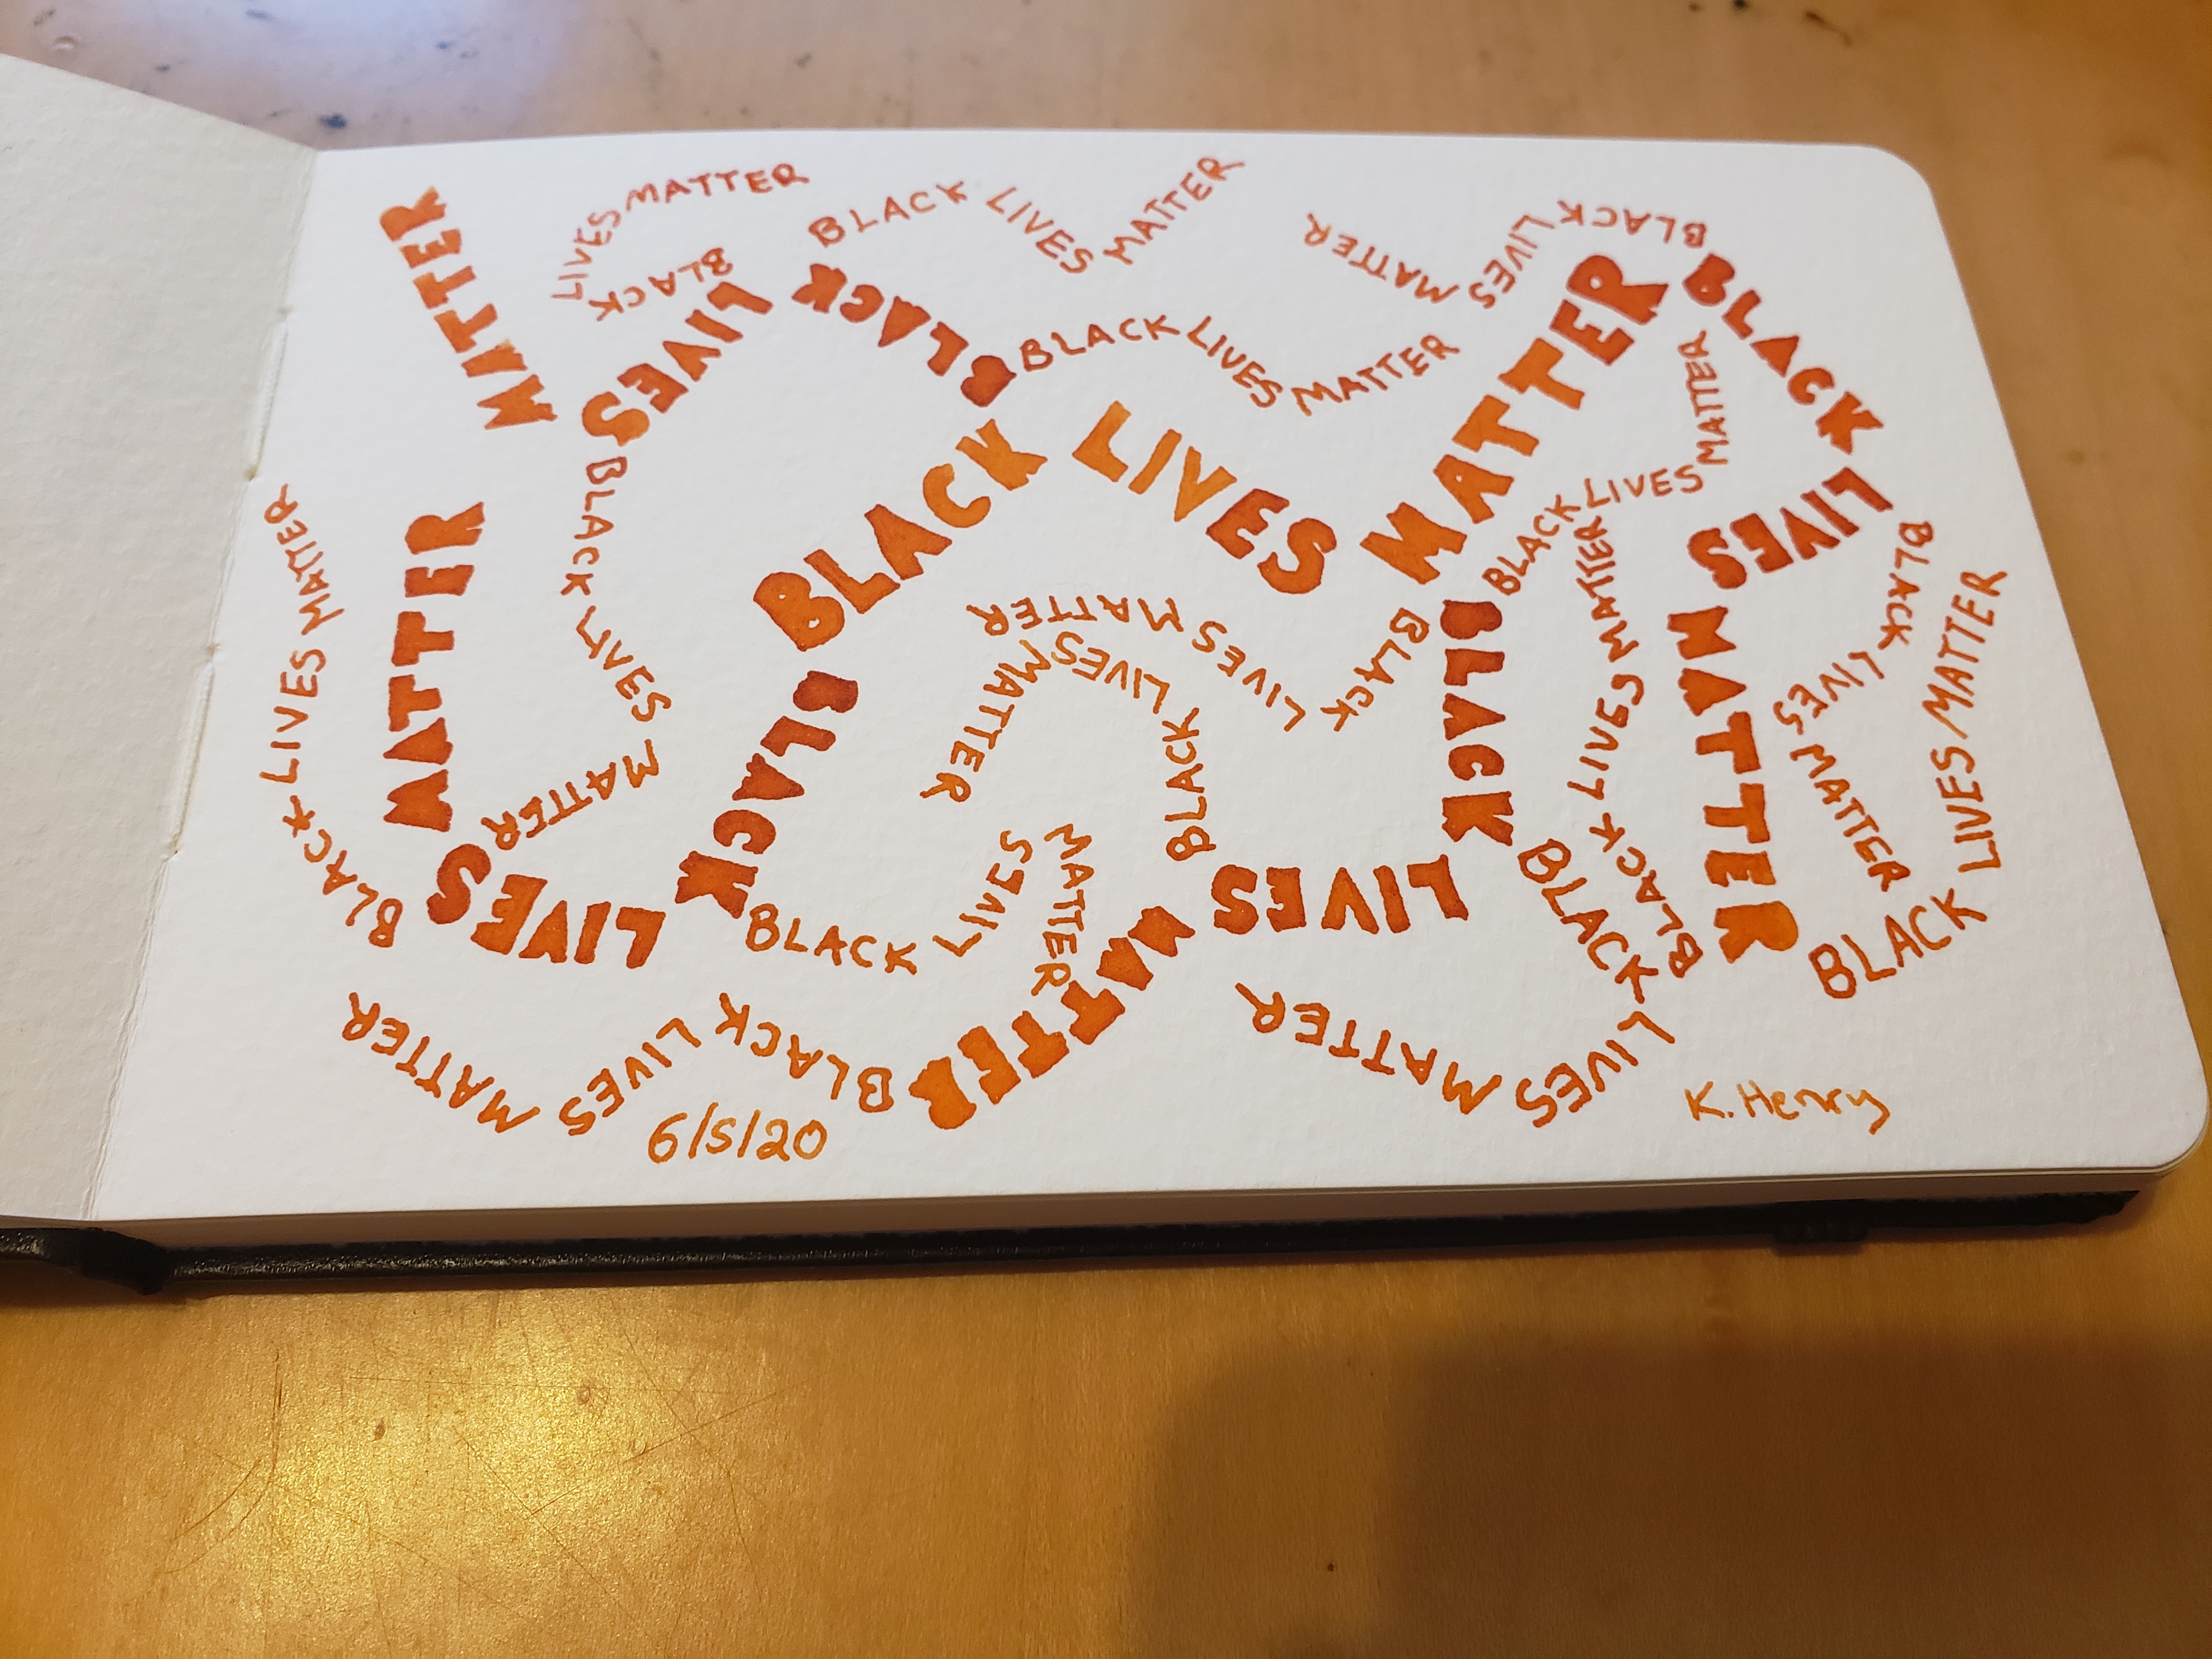 BLACK LIVES MATTER
BLACK LIVES MATTER
BLACK LIVES MATTER
BLACK LIVES MATTER
BLACK LIVES MATTER
BLACK LIVES MATTER
BLACK LIVES MATTER
BLACK LIVES MATTER
BLACK LIVES MATTER
BLACK LIVES MATTER
BLACK LIVES MATTER
BLACK LIVES MATTER
BLACK LIVES MATTER
BLACK LIVES MATTER
BLACK LIVES MATTER
BLACK LIVES MATTER
BLACK LIVES MATTER
BLACK LIVES MATTER
BLACK LIVES MATTER
BLACK LIVES MATTER
6/5/20
K. Henry